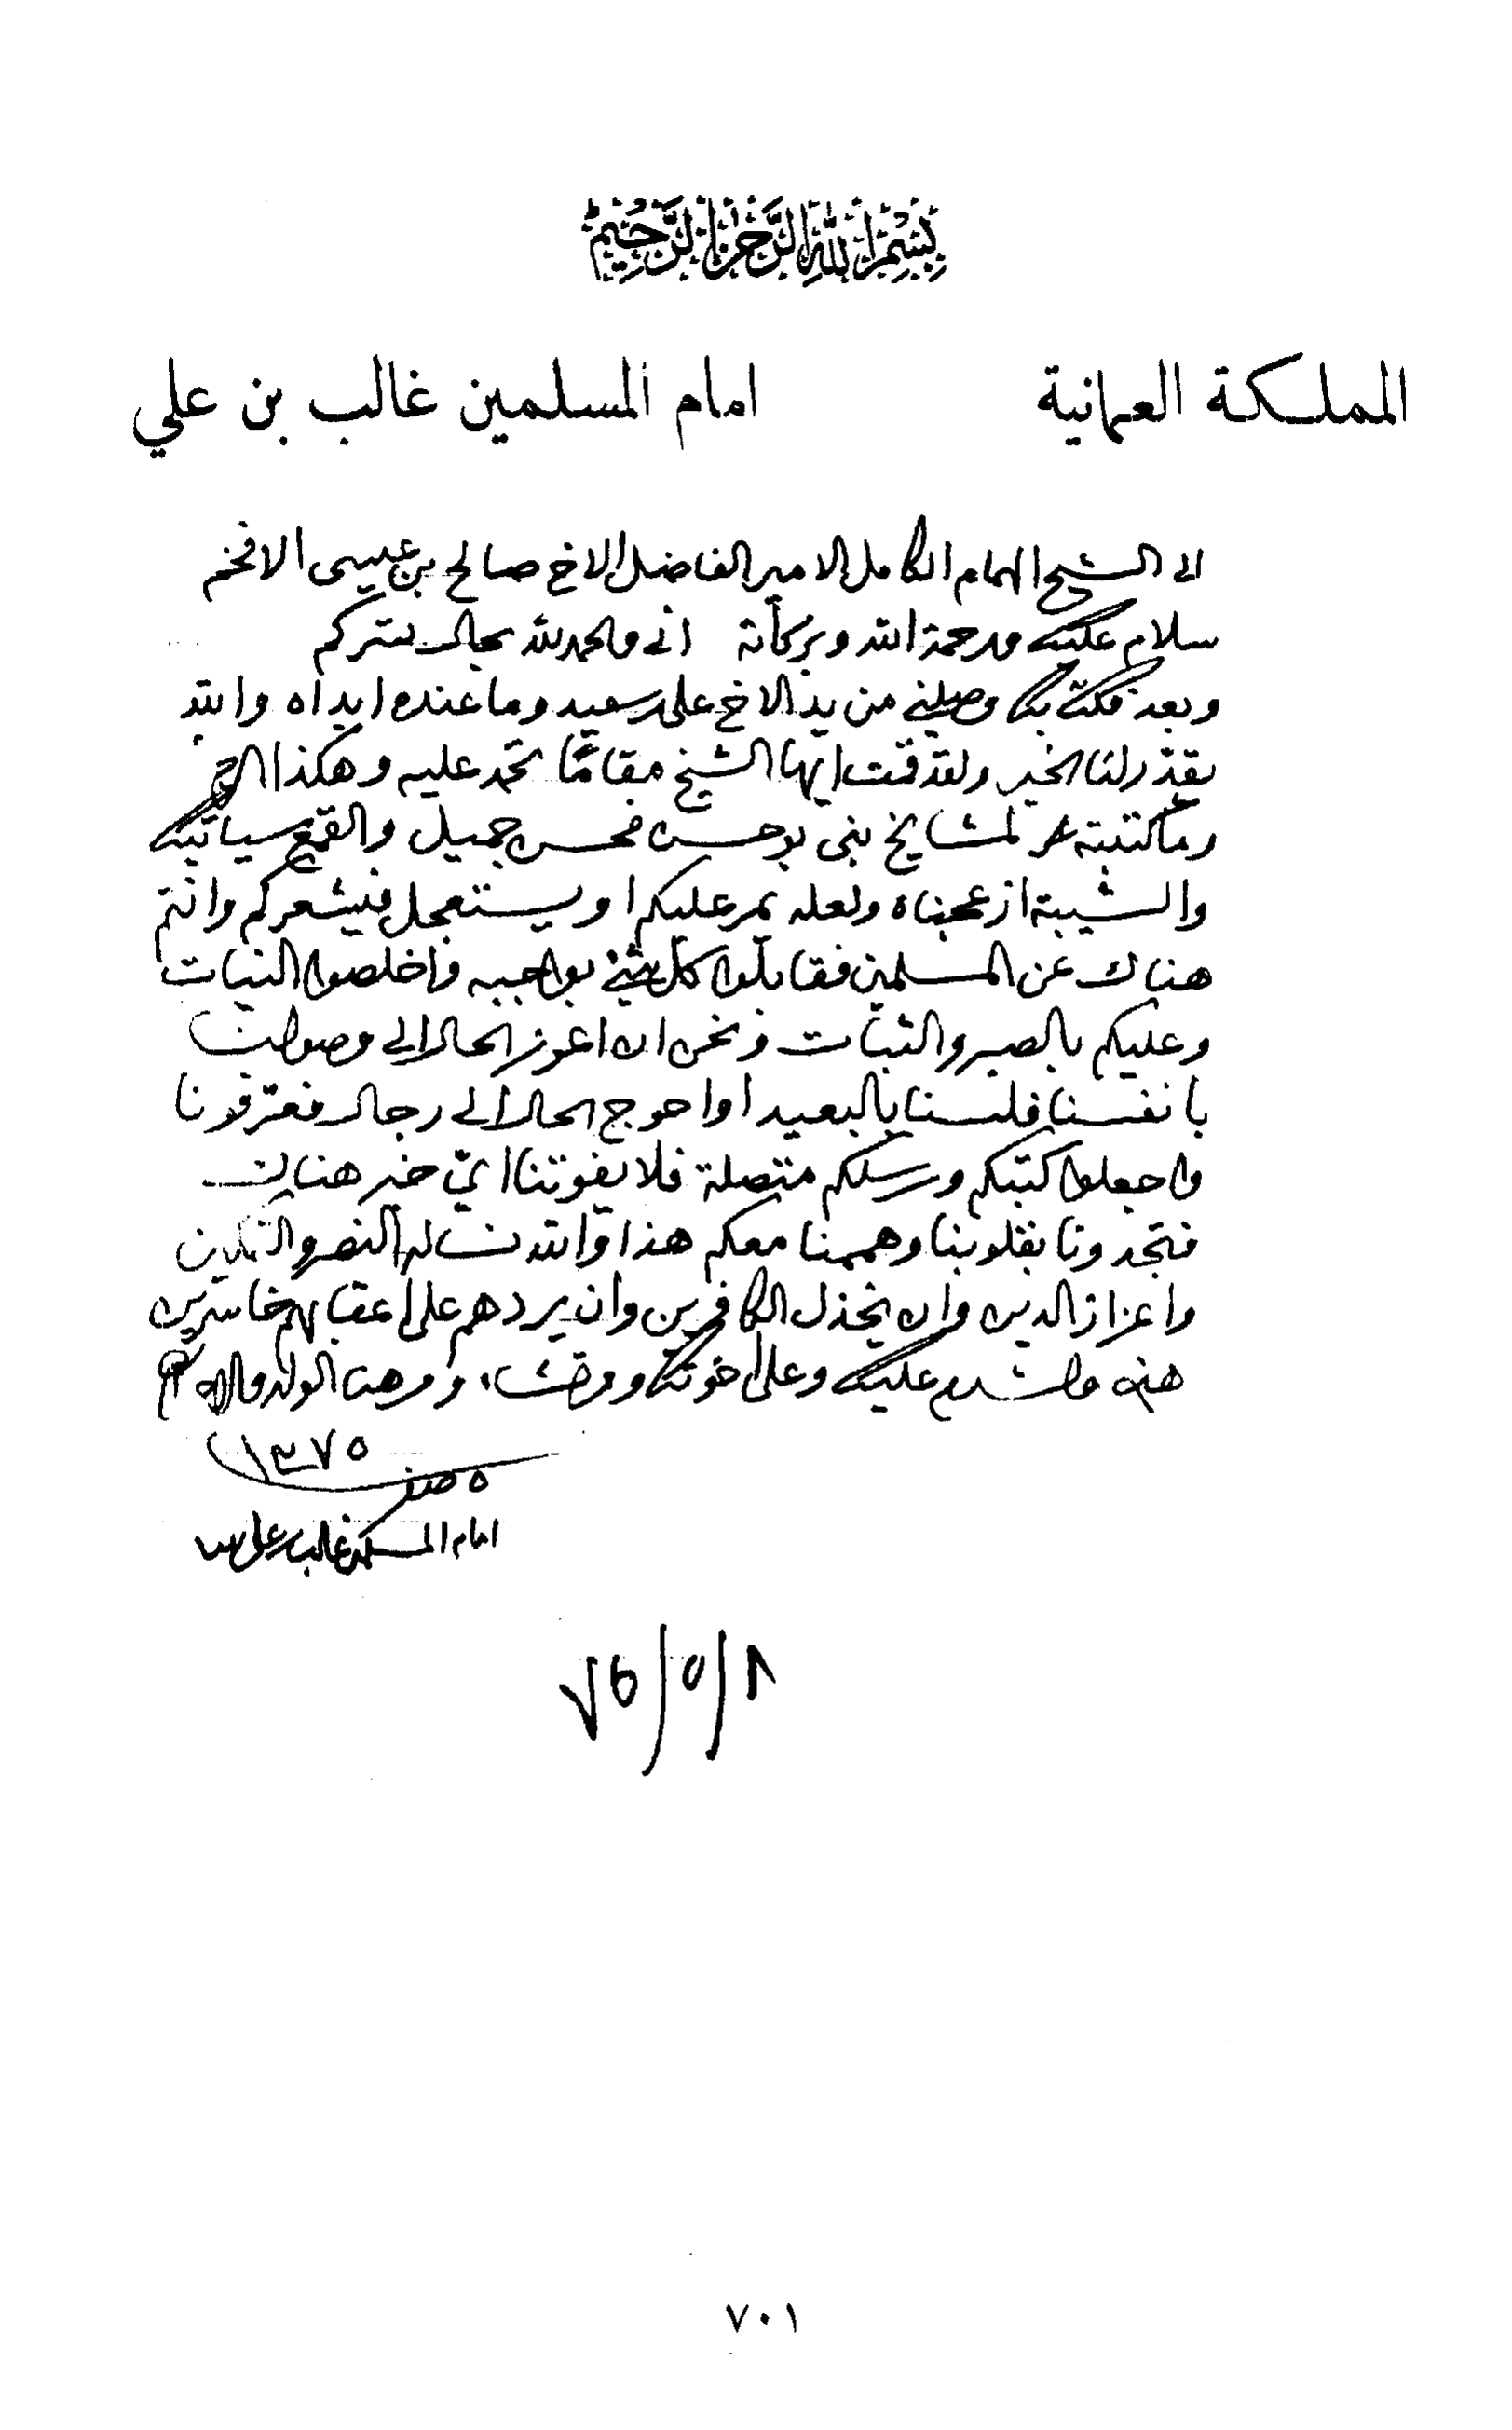 بسم الله الرحمن الرحيم
المملكة العمانية
امام المسلمين غالب بن علي
الى الشيخ الهمام الكامل الامير الفاضل الاخ صالح بن عيسى الافخم
سلام عليك ورحمة الله وبركاته اني والحمد لله بحال يسركم
وبعد فكتابك وصلني من يد الاخ علي بن سعيد وما عنده ابداه والله
يقدر لنا الخير ولقد قمت ايها الشيخ مقامًا تحمد عليه وهكذا
وما كتبته لمشايخ بني بوحسن فحسن جميل والقمع سياتيك
والشيبة ازعجناه ولعله يمر عليكم او يستعجل فيشعركم وانتم
هناك عن المسلمين فقابلوا كل شيئ بواجبه واخلصوا النيات
وعليكم بالصبر والثبات ونحن ان اعوز الحال الى وصولنا
بانفسنا فلسنا بالبعيد او احوج الحال الى رجال فعرفونا
واجعلوا كتبكم ورسلكم متصلة فلا يفوتنا ايّ خبر هناك
فتجدونا بقلوبنا وهممنا معكم هذا والله نساله النصر والتمكين
واعزاز الدين وان يخذل الكافرين وان يردهم على اعقابهم خاسرين
هذا والسلام عليك وعلى اخوتك ومن شاء ومن هنا الولد
١٣٧٥
٥ صفر
امام المسلمين غالب بن علي
٧٥/٥/٨
٧٠١